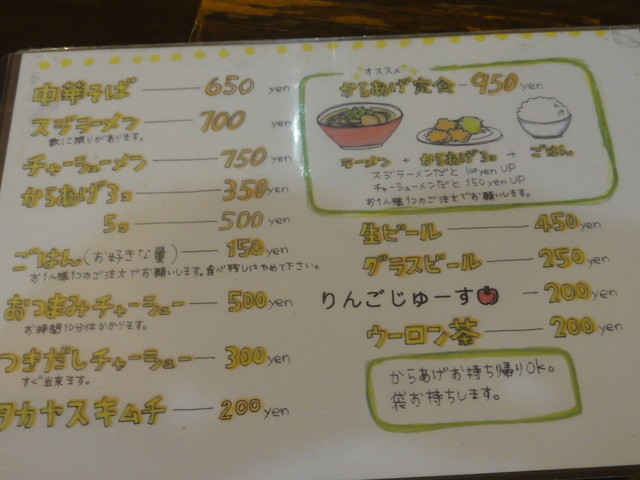 中華そば 650 yen
スジラーメン 700 yen
数に限りがあります。
チャーシューメン 750 yen
からあげ3コ 350 yen
5コ 500 yen
ごはん(お好きな量) 150 yen
お1人様1つのご注文でお願いします。食べ残しはやめて下さい。
おつまみチャーシュー 500 yen
お時間10分位かかります。
つきだしチャーシュー 300 yen
すぐ出来ます。
タカヤスキムチ 200 yen
オススメ
からあげ定食 950 yen
ラーメン + からあげ3コ + ごはん
スジラーメンだと 100yen UP
チャーシューメンだと 150yen UP
お1人様1つのご注文でお願いします。
生ビール 450 yen
グラスビール 250 yen
りんごじゅーす 200 yen
ウーロン茶 200 yen
からあげお持ち帰りOK。
袋お持ちします。